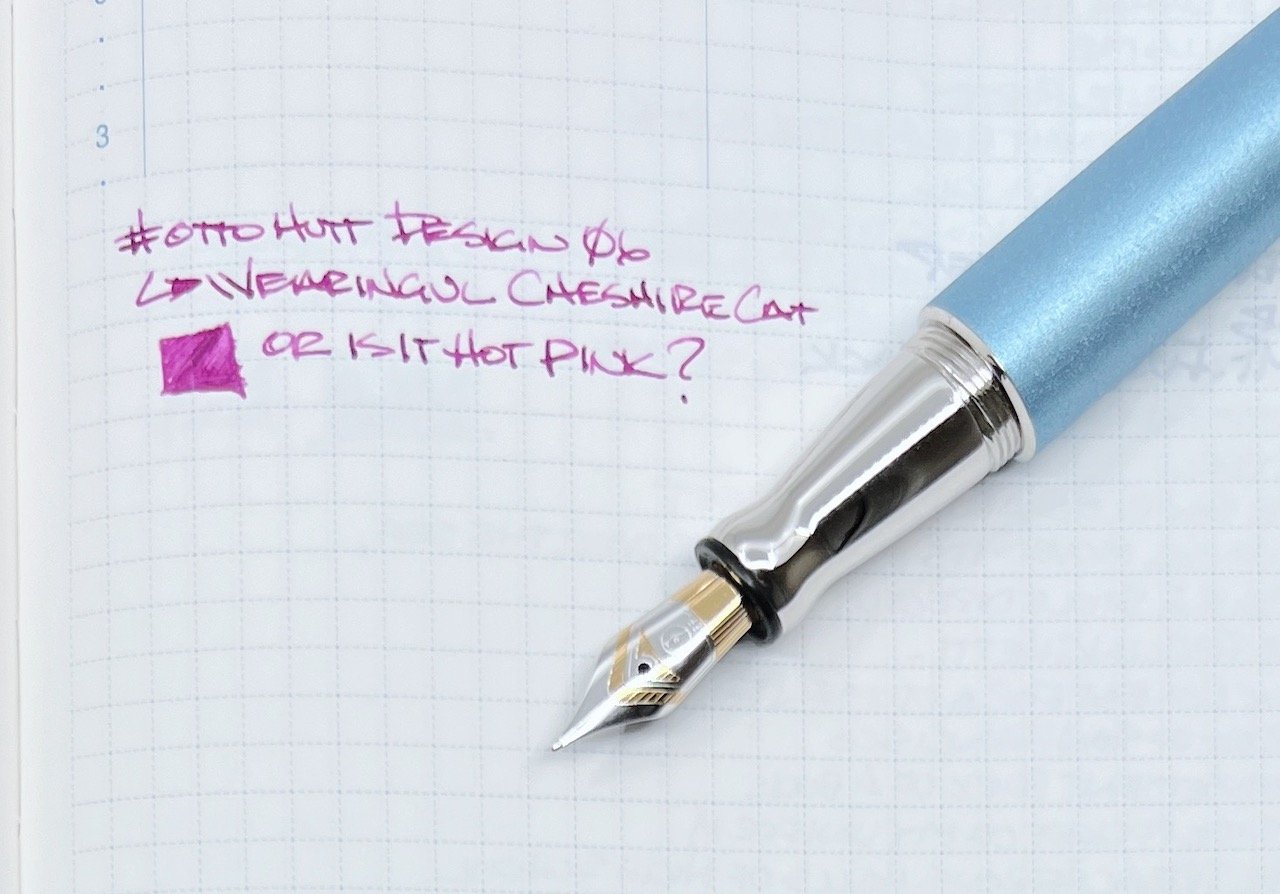 3
#OTTO HUTT DESIGN Ø6
↳WEARINGUL CHESHIRE CAT
OR IS IT HOT PINK?